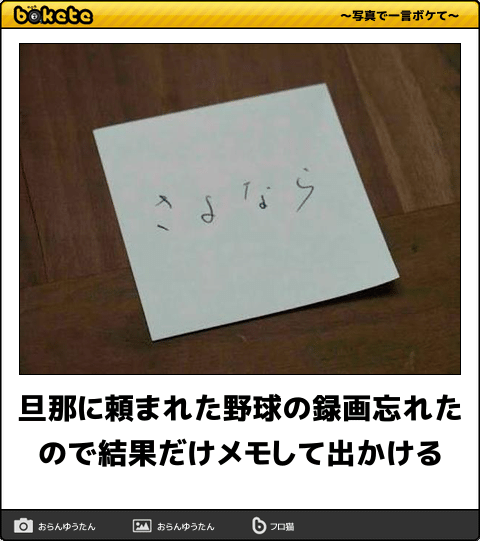 bokete
～写真で一言ボケて～
さよなら
旦那に頼まれた野球の録画忘れた
ので結果だけメモして出かける
おらんゆうたん
おらんゆうたん
フロ猫